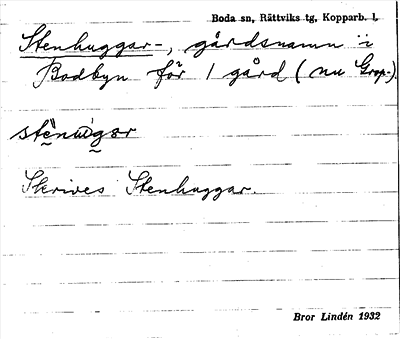 Boda sn, Rättviks tg, Kopparb. l.
Stenhuggar-, gårdsnamn i
Bodbyn för 1 gård (nu Grop-).
Skrives Stenhuggar.
Bror Lindén 1932